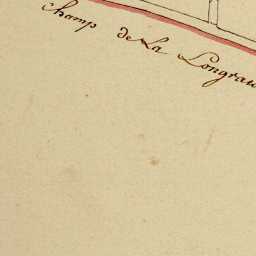 champ de La Longrai